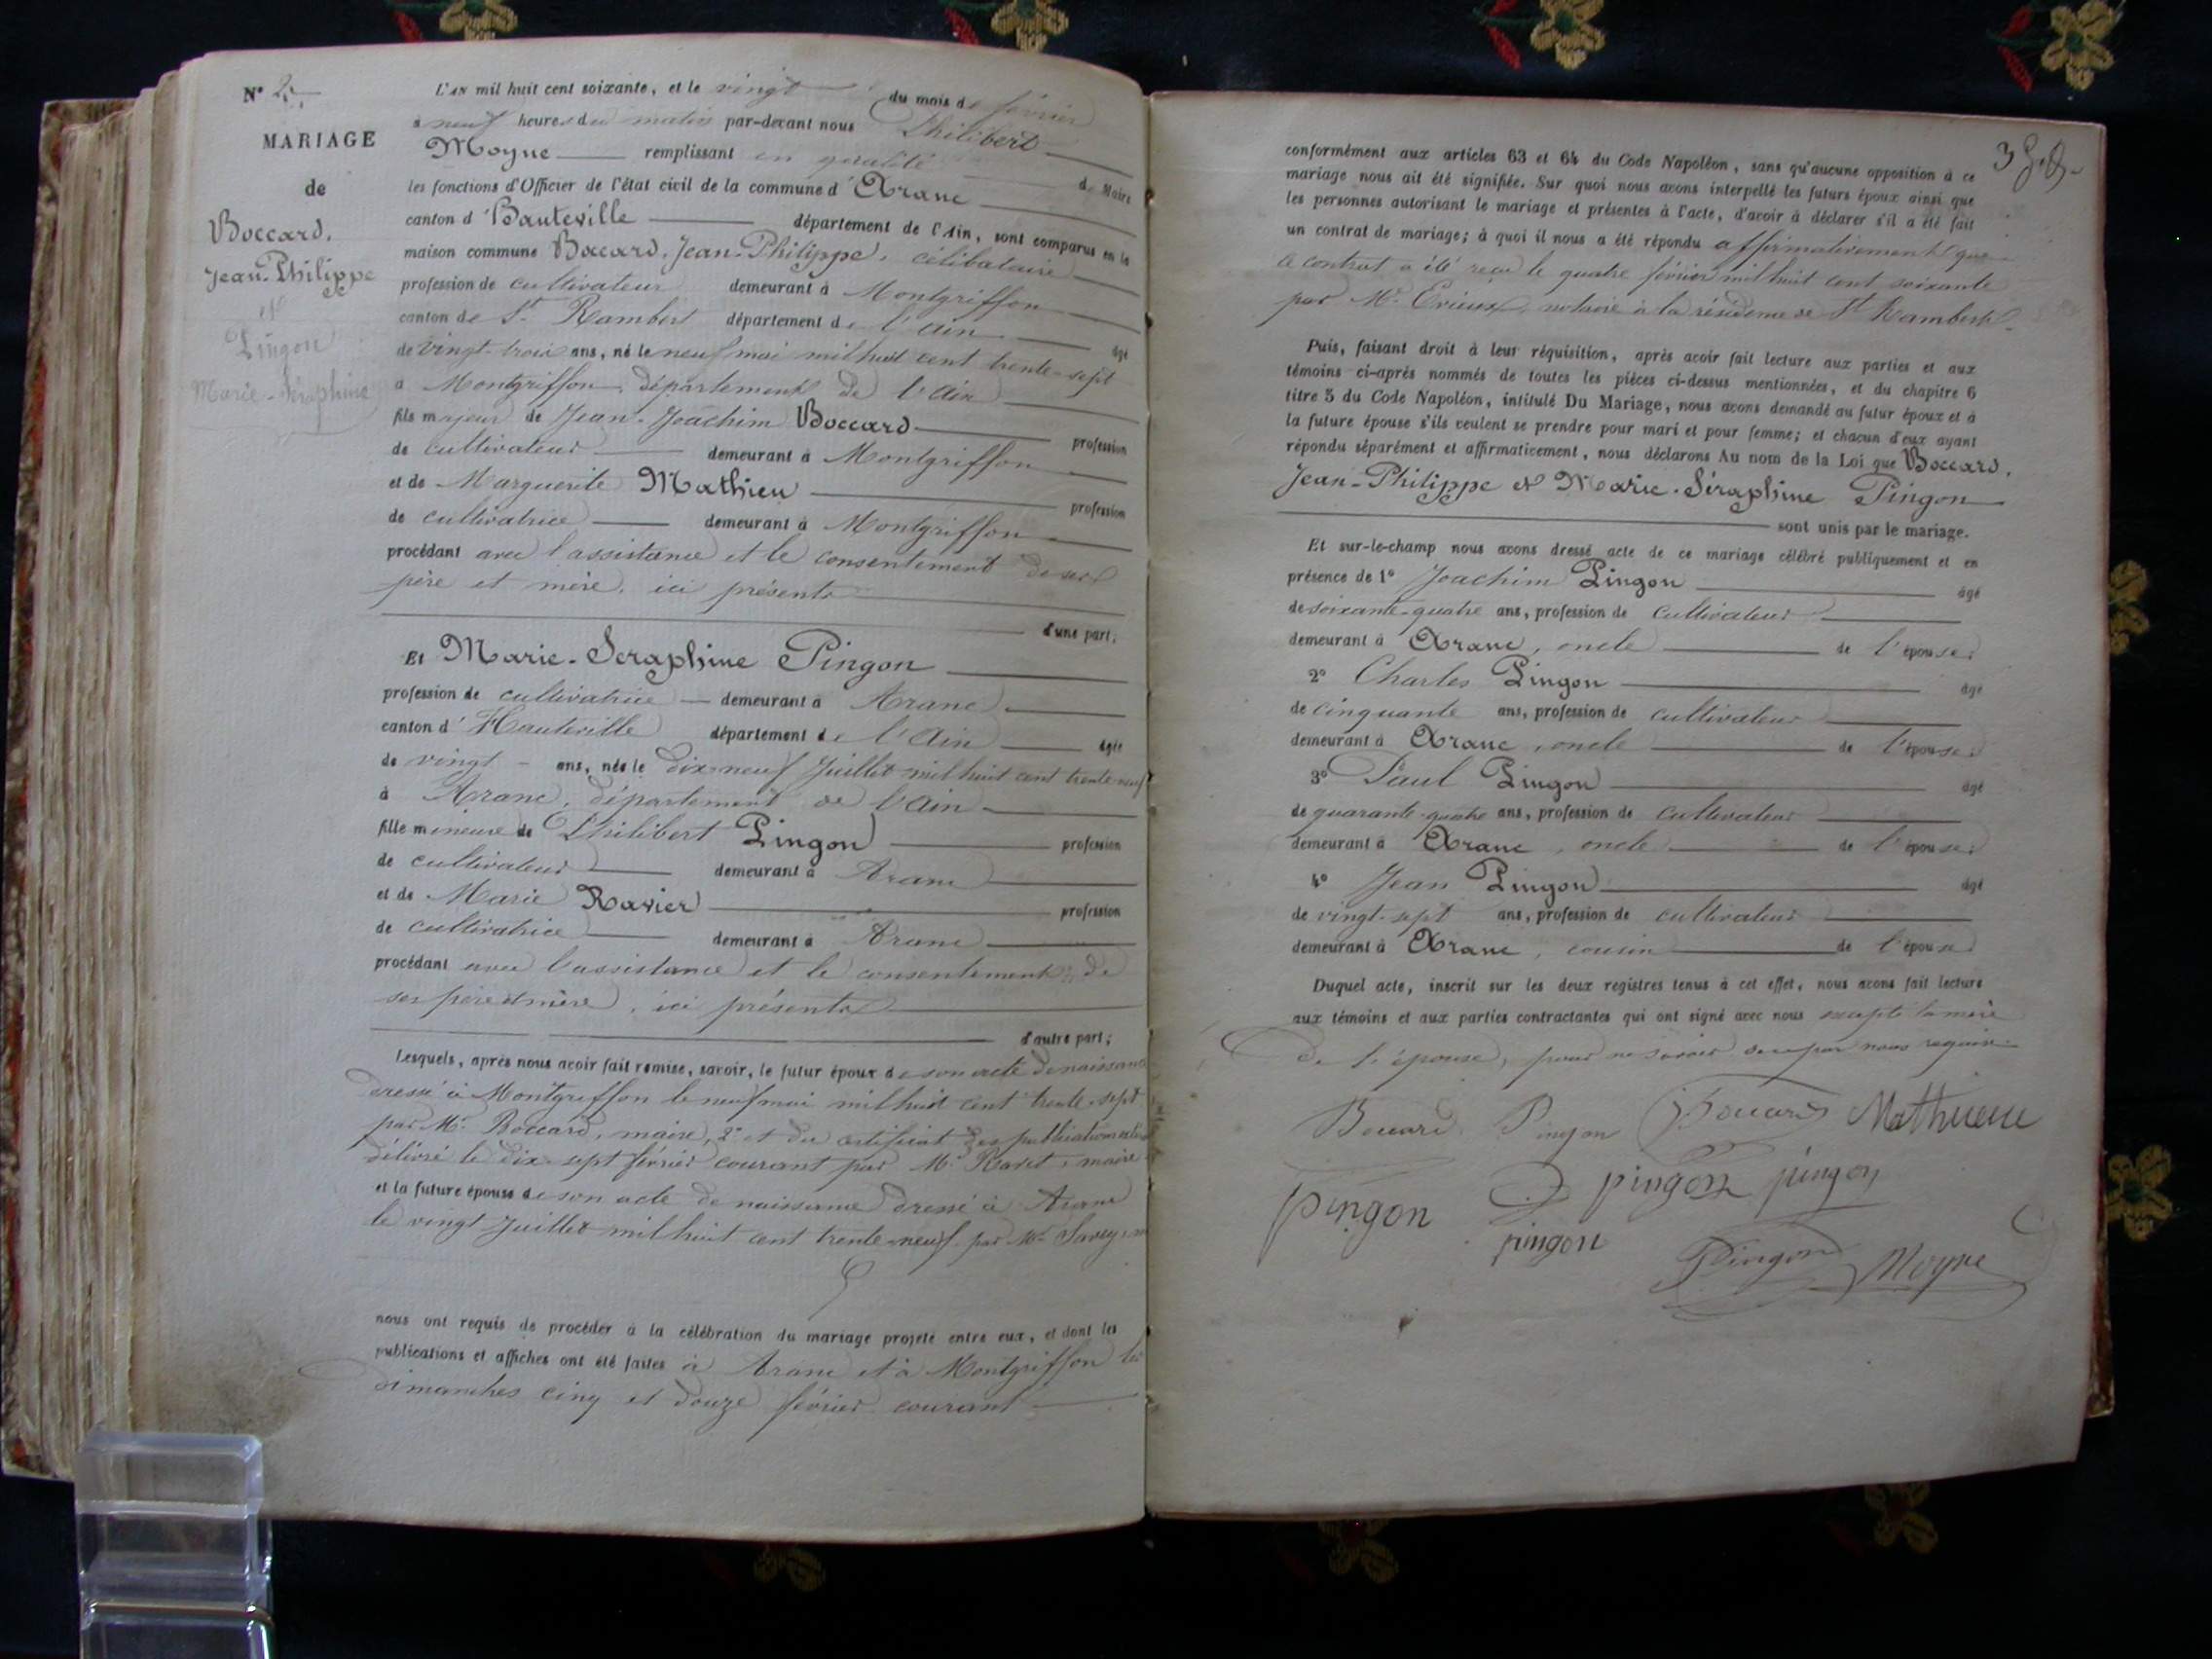 N° 2
MARIAGE
de
Boccard,
Jean-Philippe
et
Pingon
Marie-Séraphine
L'AN mil huit cent soixante, et le vingt du mois de février
à neuf heures du matin par-devant nous Philibert
Moyne remplissant en qualité de Maire
les fonctions d'Officier de l'état civil de la commune d'Aranc
canton d'Hauteville département de l'Ain, sont comparus en la
maison commune Boccard, Jean-Philippe, célibataire
profession de cultivateur demeurant à Montgriffon
canton de St Rambert département de l'ain âgé
de vingt-trois ans, né le neuf mai mil huit cent trente-sept
à Montgriffon, département de l'ain
fils majeur de Jean-Joachim Boccard profession
de cultivateur demeurant à Montgriffon
et de Marguerite Mathieu profession
de cultivatrice demeurant à Montgriffon
procédant avec l'assistance et le consentement de ses
père et mère, ici présents
d'une part;
Et Marie-Seraphine Pingon
profession de cultivatrice demeurant à Aranc
canton d'Hauteville département de l'Ain âgée
de vingt ans, née le dix-neuf Juillet mil huit cent trente-neuf
à Aranc, département de l'Ain
fille mineure de Philibert Pingon profession
de cultivateur demeurant à Aranc
et de Marie Ravier profession
de cultivatrice demeurant à Aranc
procédant avec l'assistance et le consentement de
ses père et mère, ici présents
d'autre part;
Lesquels, après nous avoir fait remise, savoir, le futur époux de son acte de naissance
dressé à Montgriffon le neuf mai mil huit cent trente-sept
par Mr Boccard, maire, 2° et du certificat des publications
délivré le dix-sept février courant par Mr Ravet, maire
et la future épouse de son acte de naissance dressé à Aranc
le vingt Juillet mil huit cent trente-neuf par Mr Savey,
nous ont requis de procéder à la célébration du mariage projeté entre eux, et dont les
publications et affiches ont été faites à Aranc et à Montgriffon les
dimanches cinq et douze février courant
3
conformément aux articles 63 et 64 du Code Napoléon, sans qu'aucune opposition à ce
mariage nous ait été signifiée. Sur quoi nous avons interpellé les futurs époux ainsi que
les personnes autorisant le mariage et présentes à l'acte, d'avoir à déclarer s'il a été fait
un contrat de mariage; à quoi il nous a été répondu affirmativement que
ce contrat a été reçu le quatre février mil huit cent soixante
par Mr Evieux, notaire à la résidence de St Rambert.
Puis, faisant droit à leur réquisition, après avoir fait lecture aux parties et aux
témoins ci-après nommés de toutes les pièces ci-dessus mentionnées, et du chapitre 6
titre 5 du Code Napoléon, intitulé Du Mariage, nous avons demandé au futur époux et à
la future épouse s'ils veulent se prendre pour mari et pour femme; et chacun d'eux ayant
répondu séparément et affirmativement, nous déclarons Au nom de la Loi que Boccard,
Jean-Philippe et Marie-Séraphine Pingon
sont unis par le mariage.
Et sur-le-champ nous avons dressé acte de ce mariage célébré publiquement et en
présence de 1° Joachim Pingon âgé
de soixante-quatre ans, profession de cultivateur
demeurant à Aranc, oncle de l'épouse.
2° Charles Pingon âgé
de cinquante ans, profession de cultivateur
demeurant à Aranc, oncle de l'épouse.
3° Paul Pingon âgé
de quarante-quatre ans, profession de cultivateur
demeurant à Aranc, oncle de l'épouse.
4° Jean Pingon âgé
de vingt-sept ans, profession de cultivateur
demeurant à Aranc, cousin de l'épouse
Duquel acte, inscrit sur les deux registres tenus à cet effet, nous avons fait lecture
aux témoins et aux parties contractantes qui ont signé avec nous excepté la mère
de l'épouse, pour ne savoir par nous requise
Boccard Pingon Boccard Mathieu
Pingon pingon pingon
pingon
Pingon Moyne